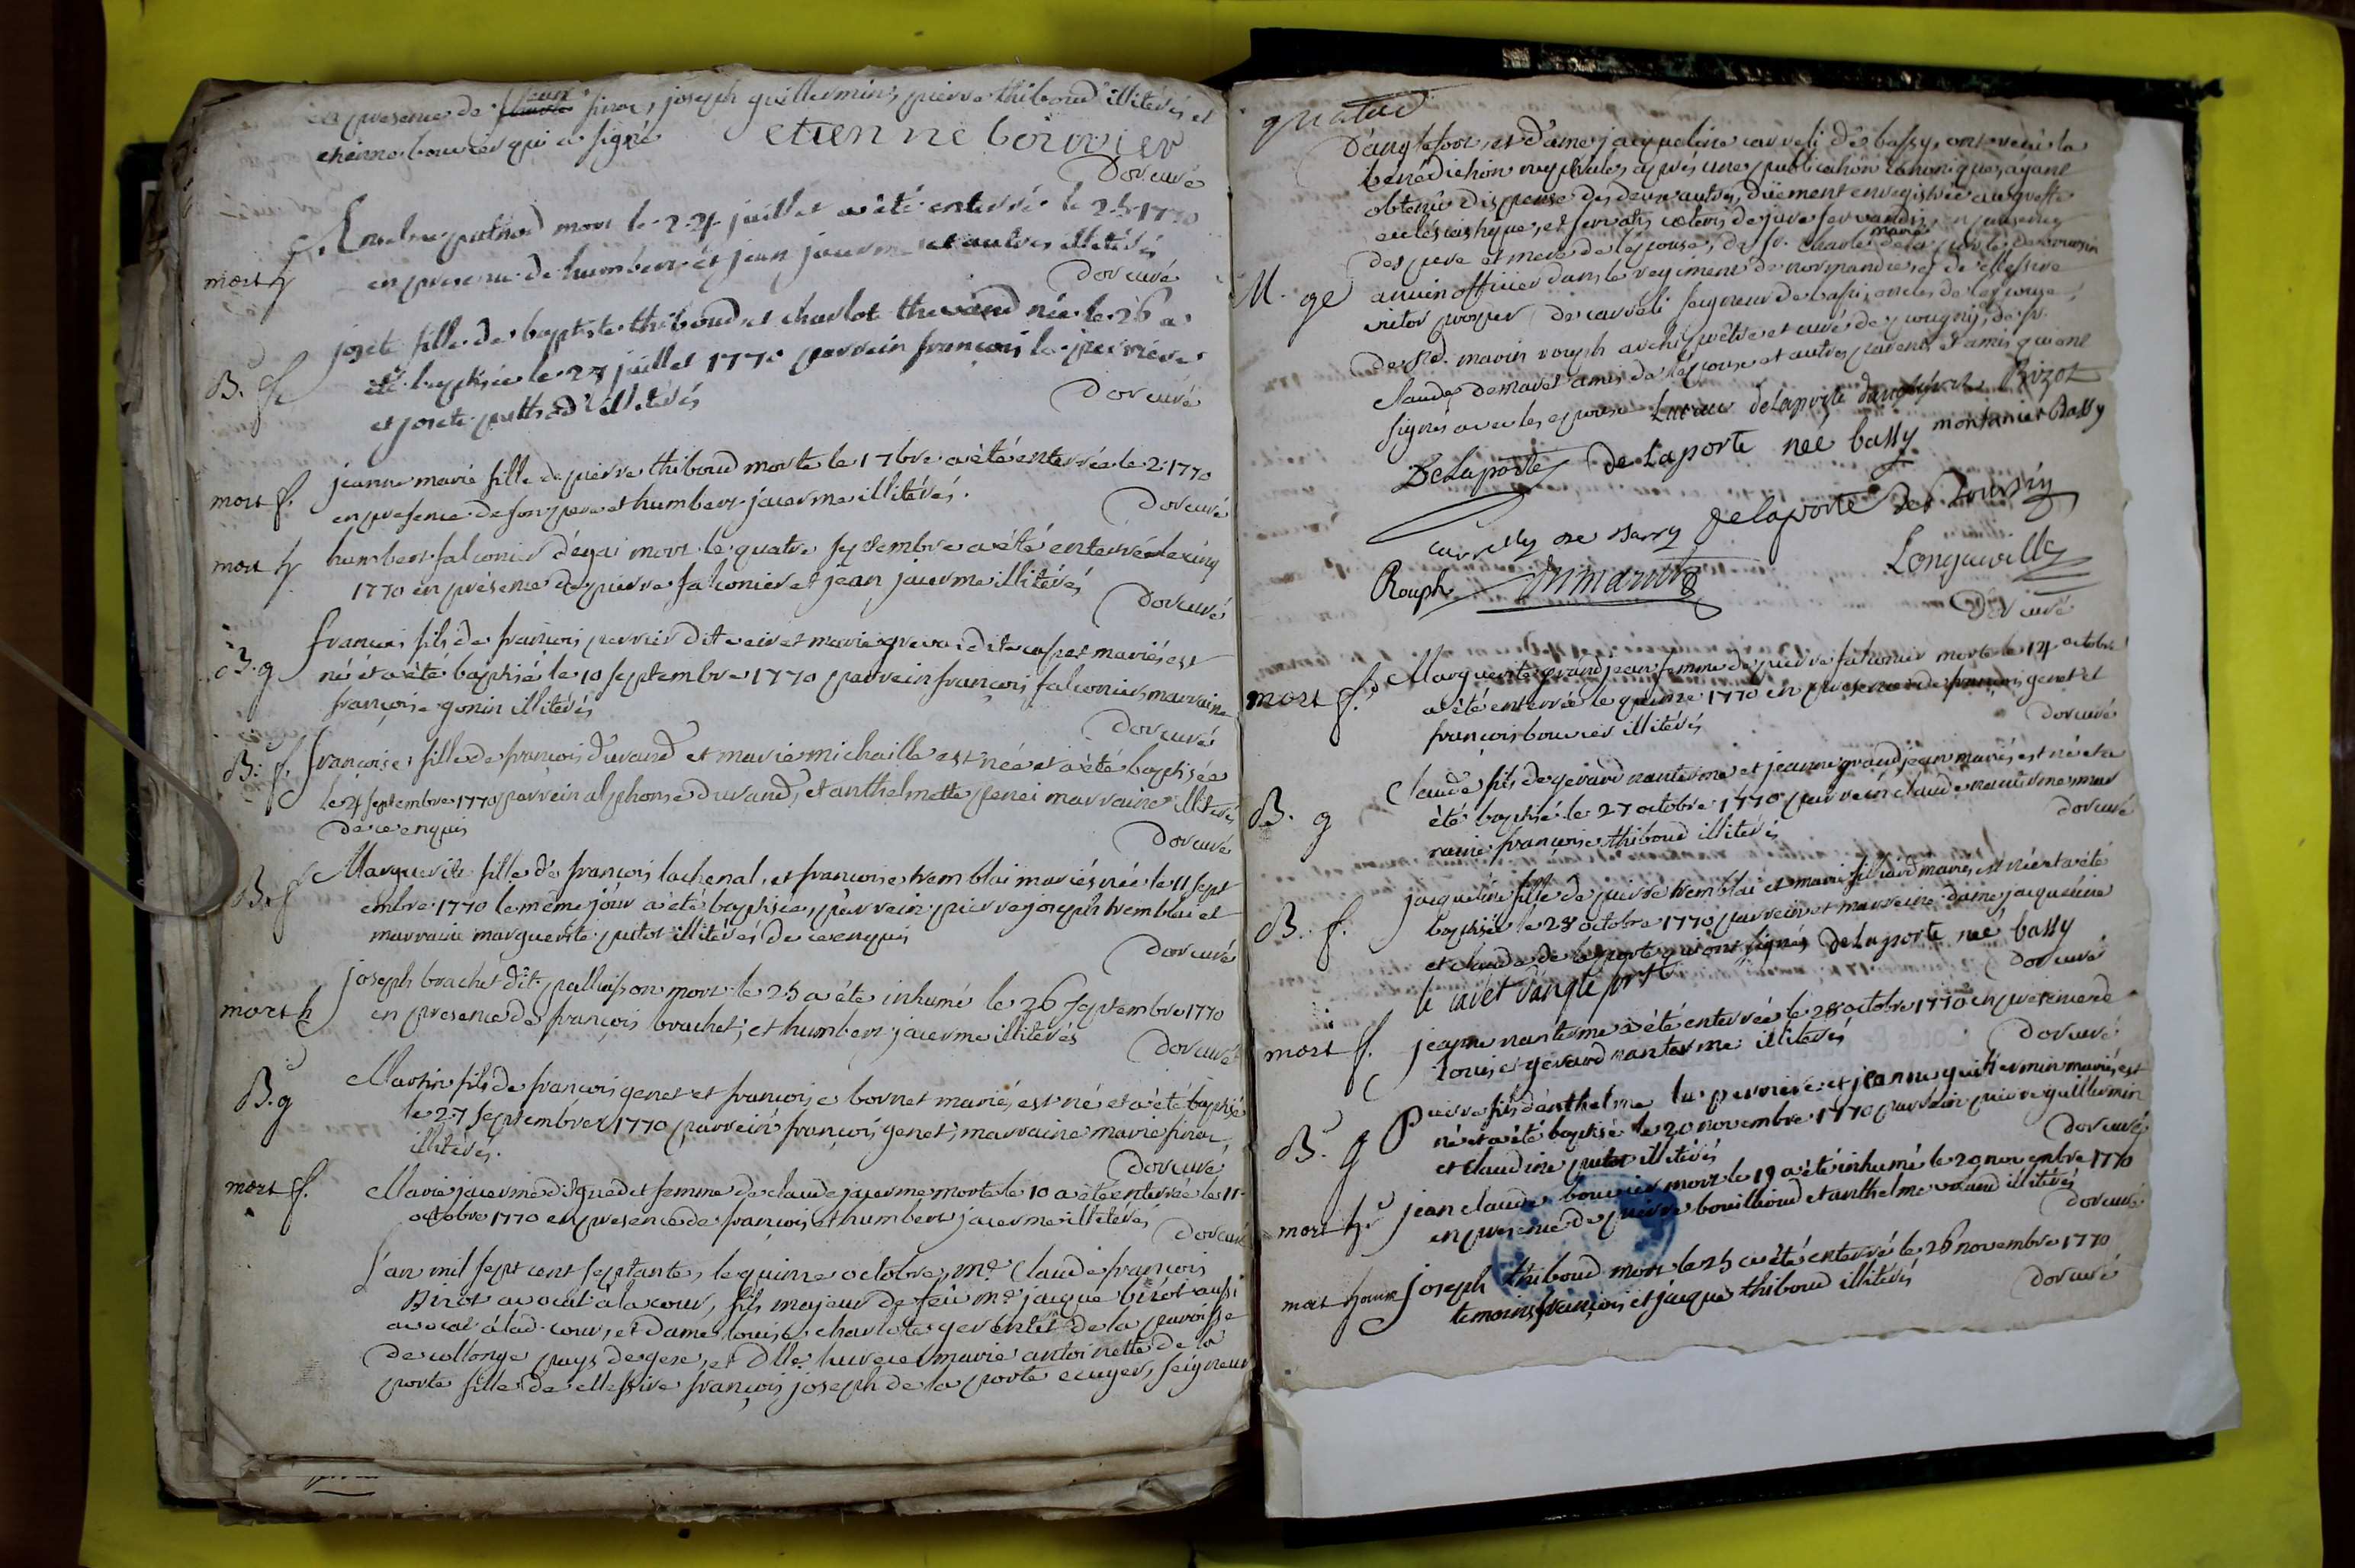 en presence de jean pinoz, joseph guillermin, pierre thiboud illiterés et
etienne bouvier qui a signé etienne bouvier
Dor curé
mort h Anselme puthod mort le 24 juillet a été enterré le 25 1770
en presence de humbert et jean jacerme et autres illiterés
Dor curé
B. f josete fille de baptiste thiboud et charlot thevand née le 26 a
été baptisée le 27 juillet 1770 parrein françois la perriere
et josete puthod illiterés
Dor curé
mort f. jeanne marie fille de pierre thiboud morte le 1 7bre a été enterrée le 2 1770
en presence de son pere et humbert jacerme illiterés.
Dor curé
mort h humbert falconier mort le quatre septembre a été enterré le cinq
1770 en présence de pierre falconier et jean jacerme illiterés
Dor curé
B. g françois fils de françois perrier dit et marie dite mariés est
né et a été baptisé le 10 septembre 1770 parrein françois falconier, marraine
françoise gonin illiterés
Dor curé
B. f. françoise fille de françois durand et marie michaille est née et a été baptisée
le 4 septembre 1770 parrein alphonse durand, et anthelmette marraine illiterés
de ce enquis
Dor curé
B. f Marguerite fille de françois lachenal, et françoise tremblai mariés née le 11 sept
embre 1770 le même jour a été baptisée, parrein pierre joseph tremblai et
marraine marguerite putot illiterés de ce enquis
Dor curé
mort h joseph brachet dit pallisson mort le 25 a été inhumé le 26 septembre 1770
en presence de françois brachet, et humbert jacerme illiterés
Dor curé
B. g Martin fils de françois genet et françoise bornet mariés, est né et a été baptisé
le 27 septembre 1770 parrein françois genet, marraine marie pinoz
illiterés.
Dor curé
mort f. Marie jacerme femme de claude jacerme morte le 10 a été enterrée le 11
octobre 1770 en presence de françois et humbert jacerme illiterés
Dor curé
L'an mil sept cent septante, le quinze octobre, me. Claude françois
Bizot avocat à la cour, fils majeur de feu me. jacque bizot aussi
avocat à lad. cour, et dame louise charlote de la paroisse
de collonge pays de gex, et Dlle. lucrece marie antoinette de la
porte fille de Messire françois joseph de la porte ecuyer, seigneur
M. ge d'anglefort et dame jacqueline carreli de bassy, ont reçu la
benédiction nuptiale, après une publication canonique, ayant
obtenu dispense des deux autres, duement enregistrée au greffe
eclesiastique, et servatis cæteris de jure servandis, en presence
des pere et mere de l'epouse, de sr. charle marie de la porte de
ancien officier dans le regiment de normandie, et de Messire
victor prosper de carreli seigneur de bassi, oncles de l'epouse,
de Rd. marin rouph archiprêtre et curé de pougny, de sr.
claude amis de l'epouse et autres parents et amis qui ont
signés avec les epoux Lucrece delaporte danglefort Bizot
Delaporte de laporte neé bassy montanier Bassy
carrelly de Bassy delaporte
Rouph Longueville
Dor curé
mort f. Marguerite grandjean femme de pierre falconier morte le 14 octobre
a été enterrée le quinze 1770 en presence de françois genet et
françois bouvier illiterés
Dor curé
B. g Claude fils de gerard nanterme et jeanne grandjean mariés, est né et a
été baptisé le 27 octobre 1770 parrein claude nanterme, mar
raine françoise thiboud illiterés
Dor curé
B. f. jacqueline fille de pierre tremblai et marie mariés, est née et a été
baptisée le 28 octobre 1770 parrein et marreine dame jacqueline
et claude de la porte qui ont signés Delaporte neé bassy
le cadet d'anglefort
Dor curé
mort f. jeanne nanterme a été enterrée le 28 octobre 1770 en presence de
louis et gerard nanterme illiterés
Dor curé
B. g Pierre fils d'anthelme la perriere et jeanne guillermin mariés, est
né et a été baptisé le 20 novembre 1770 parrein pierre guillermin
et claudine putot illiterés
Dor curé
mort h jean claude bouvier mort le 19 a été inhumé le 20 novembre 1770
en presence de pierre bouillioud et anthelme illiterés
Dor curé
mort joseph thiboud mort le 25 a été enterré le 26 novembre 1770
temoins françois et jacque thiboud illiterés
Dor curé